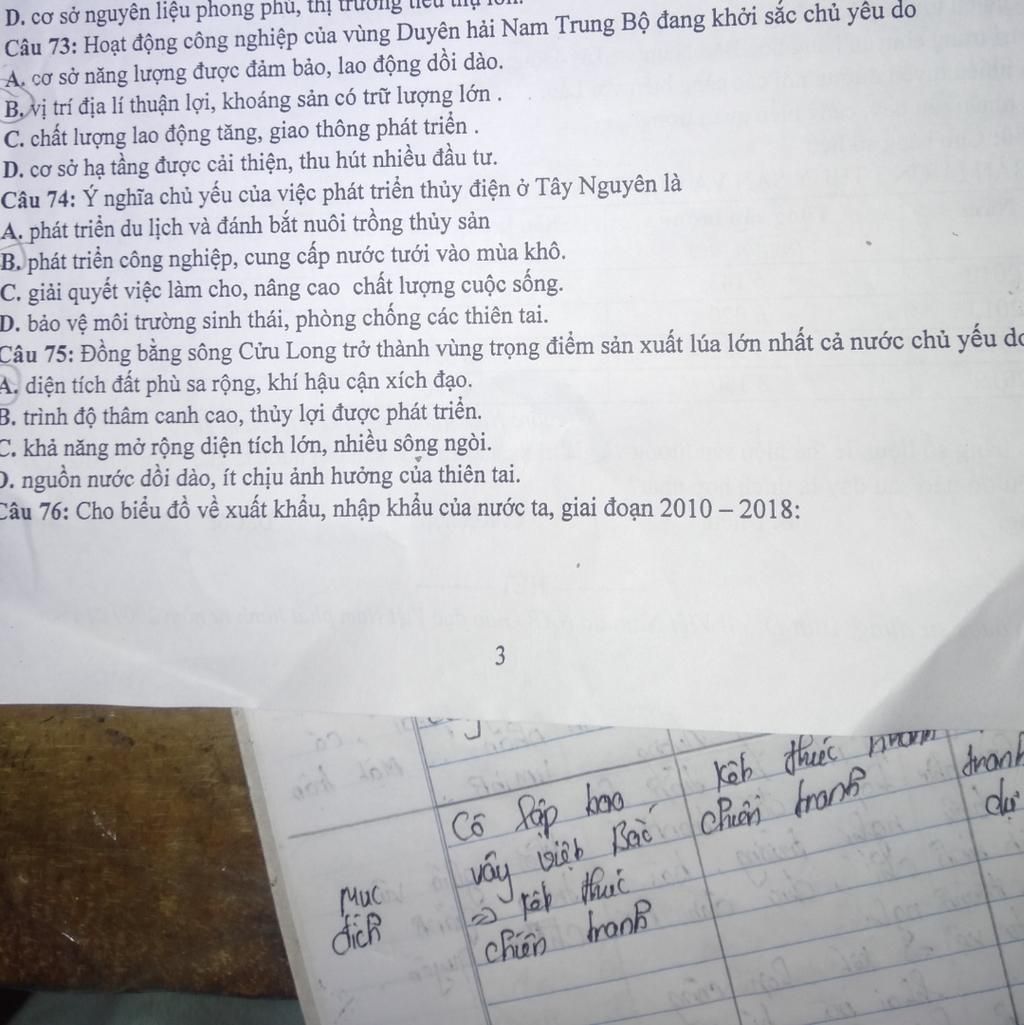 D. cơ sở nguyên liệu phong phú, thị trường tiêu thụ lớn.
Câu 73: Hoạt động công nghiệp của vùng Duyên hải Nam Trung Bộ đang khởi sắc chủ yếu do
A. cơ sở năng lượng được đảm bảo, lao động dồi dào.
B. vị trí địa lí thuận lợi, khoáng sản có trữ lượng lớn .
C. chất lượng lao động tăng, giao thông phát triển .
D. cơ sở hạ tầng được cải thiện, thu hút nhiều đầu tư.
Câu 74: Ý nghĩa chủ yếu của việc phát triển thủy điện ở Tây Nguyên là
A. phát triển du lịch và đánh bắt nuôi trồng thủy sản
B. phát triển công nghiệp, cung cấp nước tưới vào mùa khô.
C. giải quyết việc làm cho, nâng cao chất lượng cuộc sống.
D. bảo vệ môi trường sinh thái, phòng chống các thiên tai.
Câu 75: Đồng bằng sông Cửu Long trở thành vùng trọng điểm sản xuất lúa lớn nhất cả nước chủ yếu do
A. diện tích đất phù sa rộng, khí hậu cận xích đạo.
B. trình độ thâm canh cao, thủy lợi được phát triển.
C. khả năng mở rộng diện tích lớn, nhiều sông ngòi.
D. nguồn nước dồi dào, ít chịu ảnh hưởng của thiên tai.
Câu 76: Cho biểu đồ về xuất khẩu, nhập khẩu của nước ta, giai đoạn 2010 – 2018:
3
Mục
đích
Cô lập bao
vây Việt Bắc
=> kết thúc
chiến tranh
kết thúc nhanh
chiến tranh
tranh